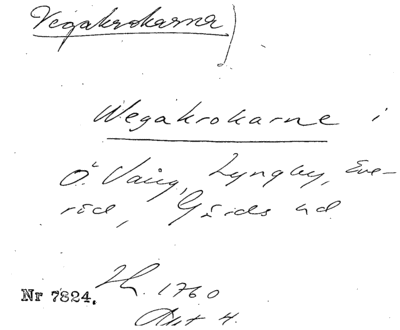 Vegakrokarna
Wegakrokarne i
Ö. Vång, Lyngby, Eve-
röd, Gärds hd
Nr 7824. LK. 1760
Akt 4.